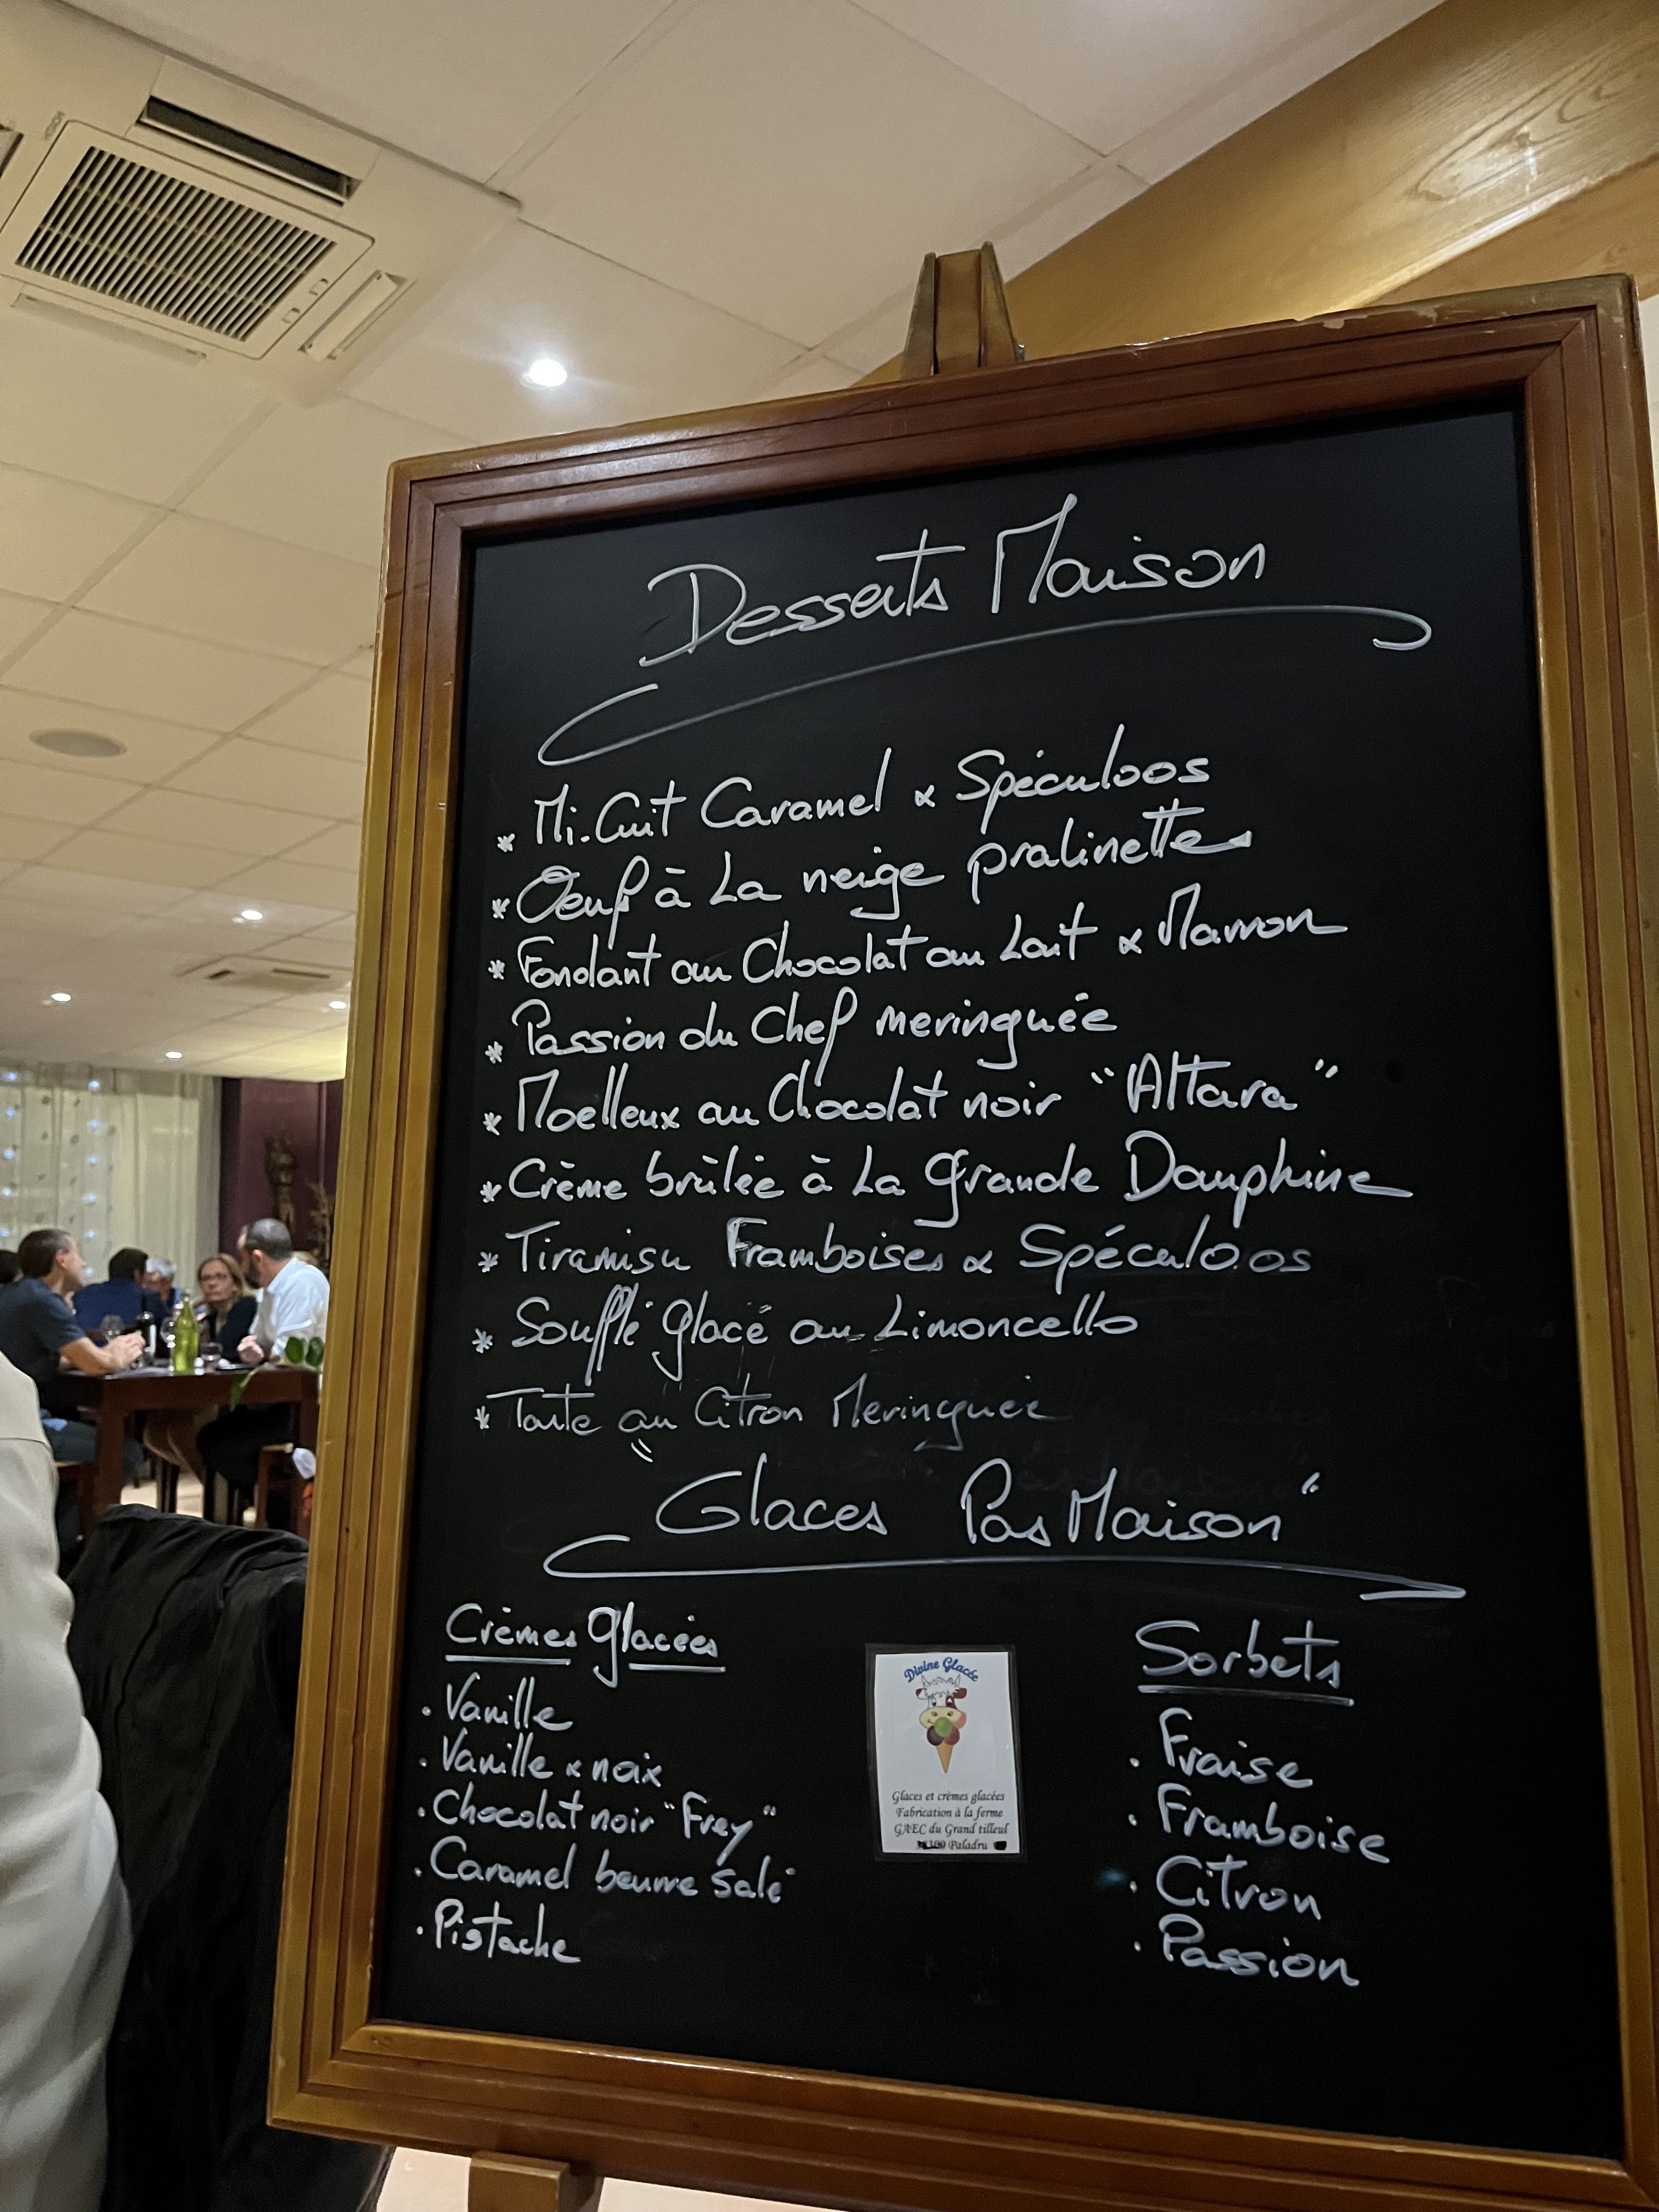 Desserts Maison
* Mi.Cuit Caramel & Spéculoos
* Oeuf à La neige pralinettes
* Fondant au Chocolat au Lait & Marron
* Passion du Chef meringuée
* Moelleux au Chocolat noir "Altara"
* Crème brûlée à La Grande Dauphine
* Tiramisu Framboises & Spéculoos
* Soufflé glacé au Limoncello
* Tarte au Citron Meringuée
"Glaces Pas Maison"
Crèmes glacées
. Vanille
. Vanille & noix
. Chocolat noir "Frey"
. Caramel beurre salé
. Pistache
Divine Glacée
Glaces et crèmes glacées
Fabrication à la ferme
GAEC du Grand tilleul
Paladru
Sorbets
. Fraise
. Framboise
. Citron
. Passion